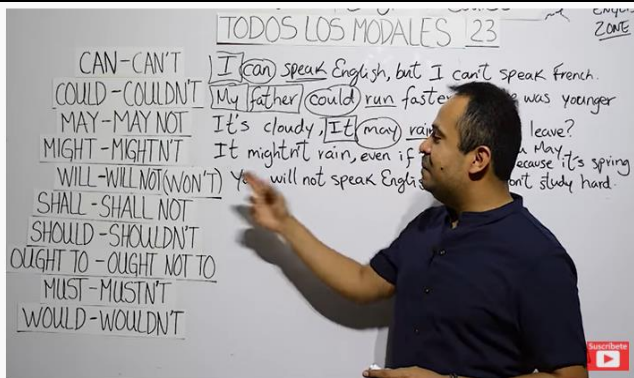 ZONE
TODOS LOS MODALES 23
CAN-CAN'T
COULD-COULDN'T
MAY-MAY NOT
MIGHT-MIGHTN'T
WILL-WILL NOT (WON'T)
SHALL-SHALL NOT
SHOULD-SHOULDN'T
OUGHT TO-OUGHT NOT TO
MUST-MUSTN'T
WOULD-WOULDN'T
I can speak English, but I can't speak French.
My father could run faster was younger
It's cloudy, It may leave?
It mightn't rain, even if May
because it's spring
will not speak study hard.
Suscríbete